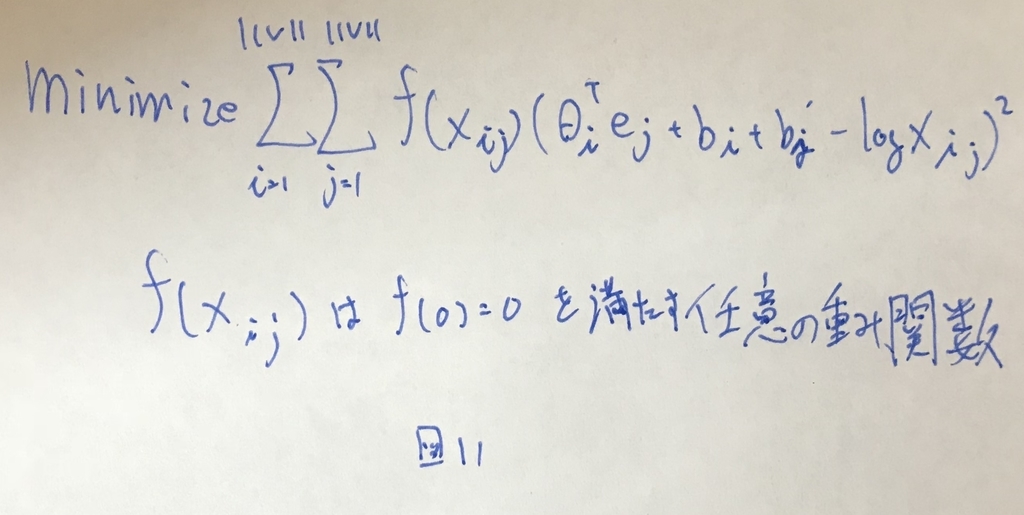 Minimize ∑_{i=1}^{||V||} ∑_{j=1}^{||V||} f(X_{ij}) (θ_i^T e_j + b_i + b_j' - log X_{ij})^2
f(X_{ij}) は f(0)=0 を満たす任意の重み関数
図11